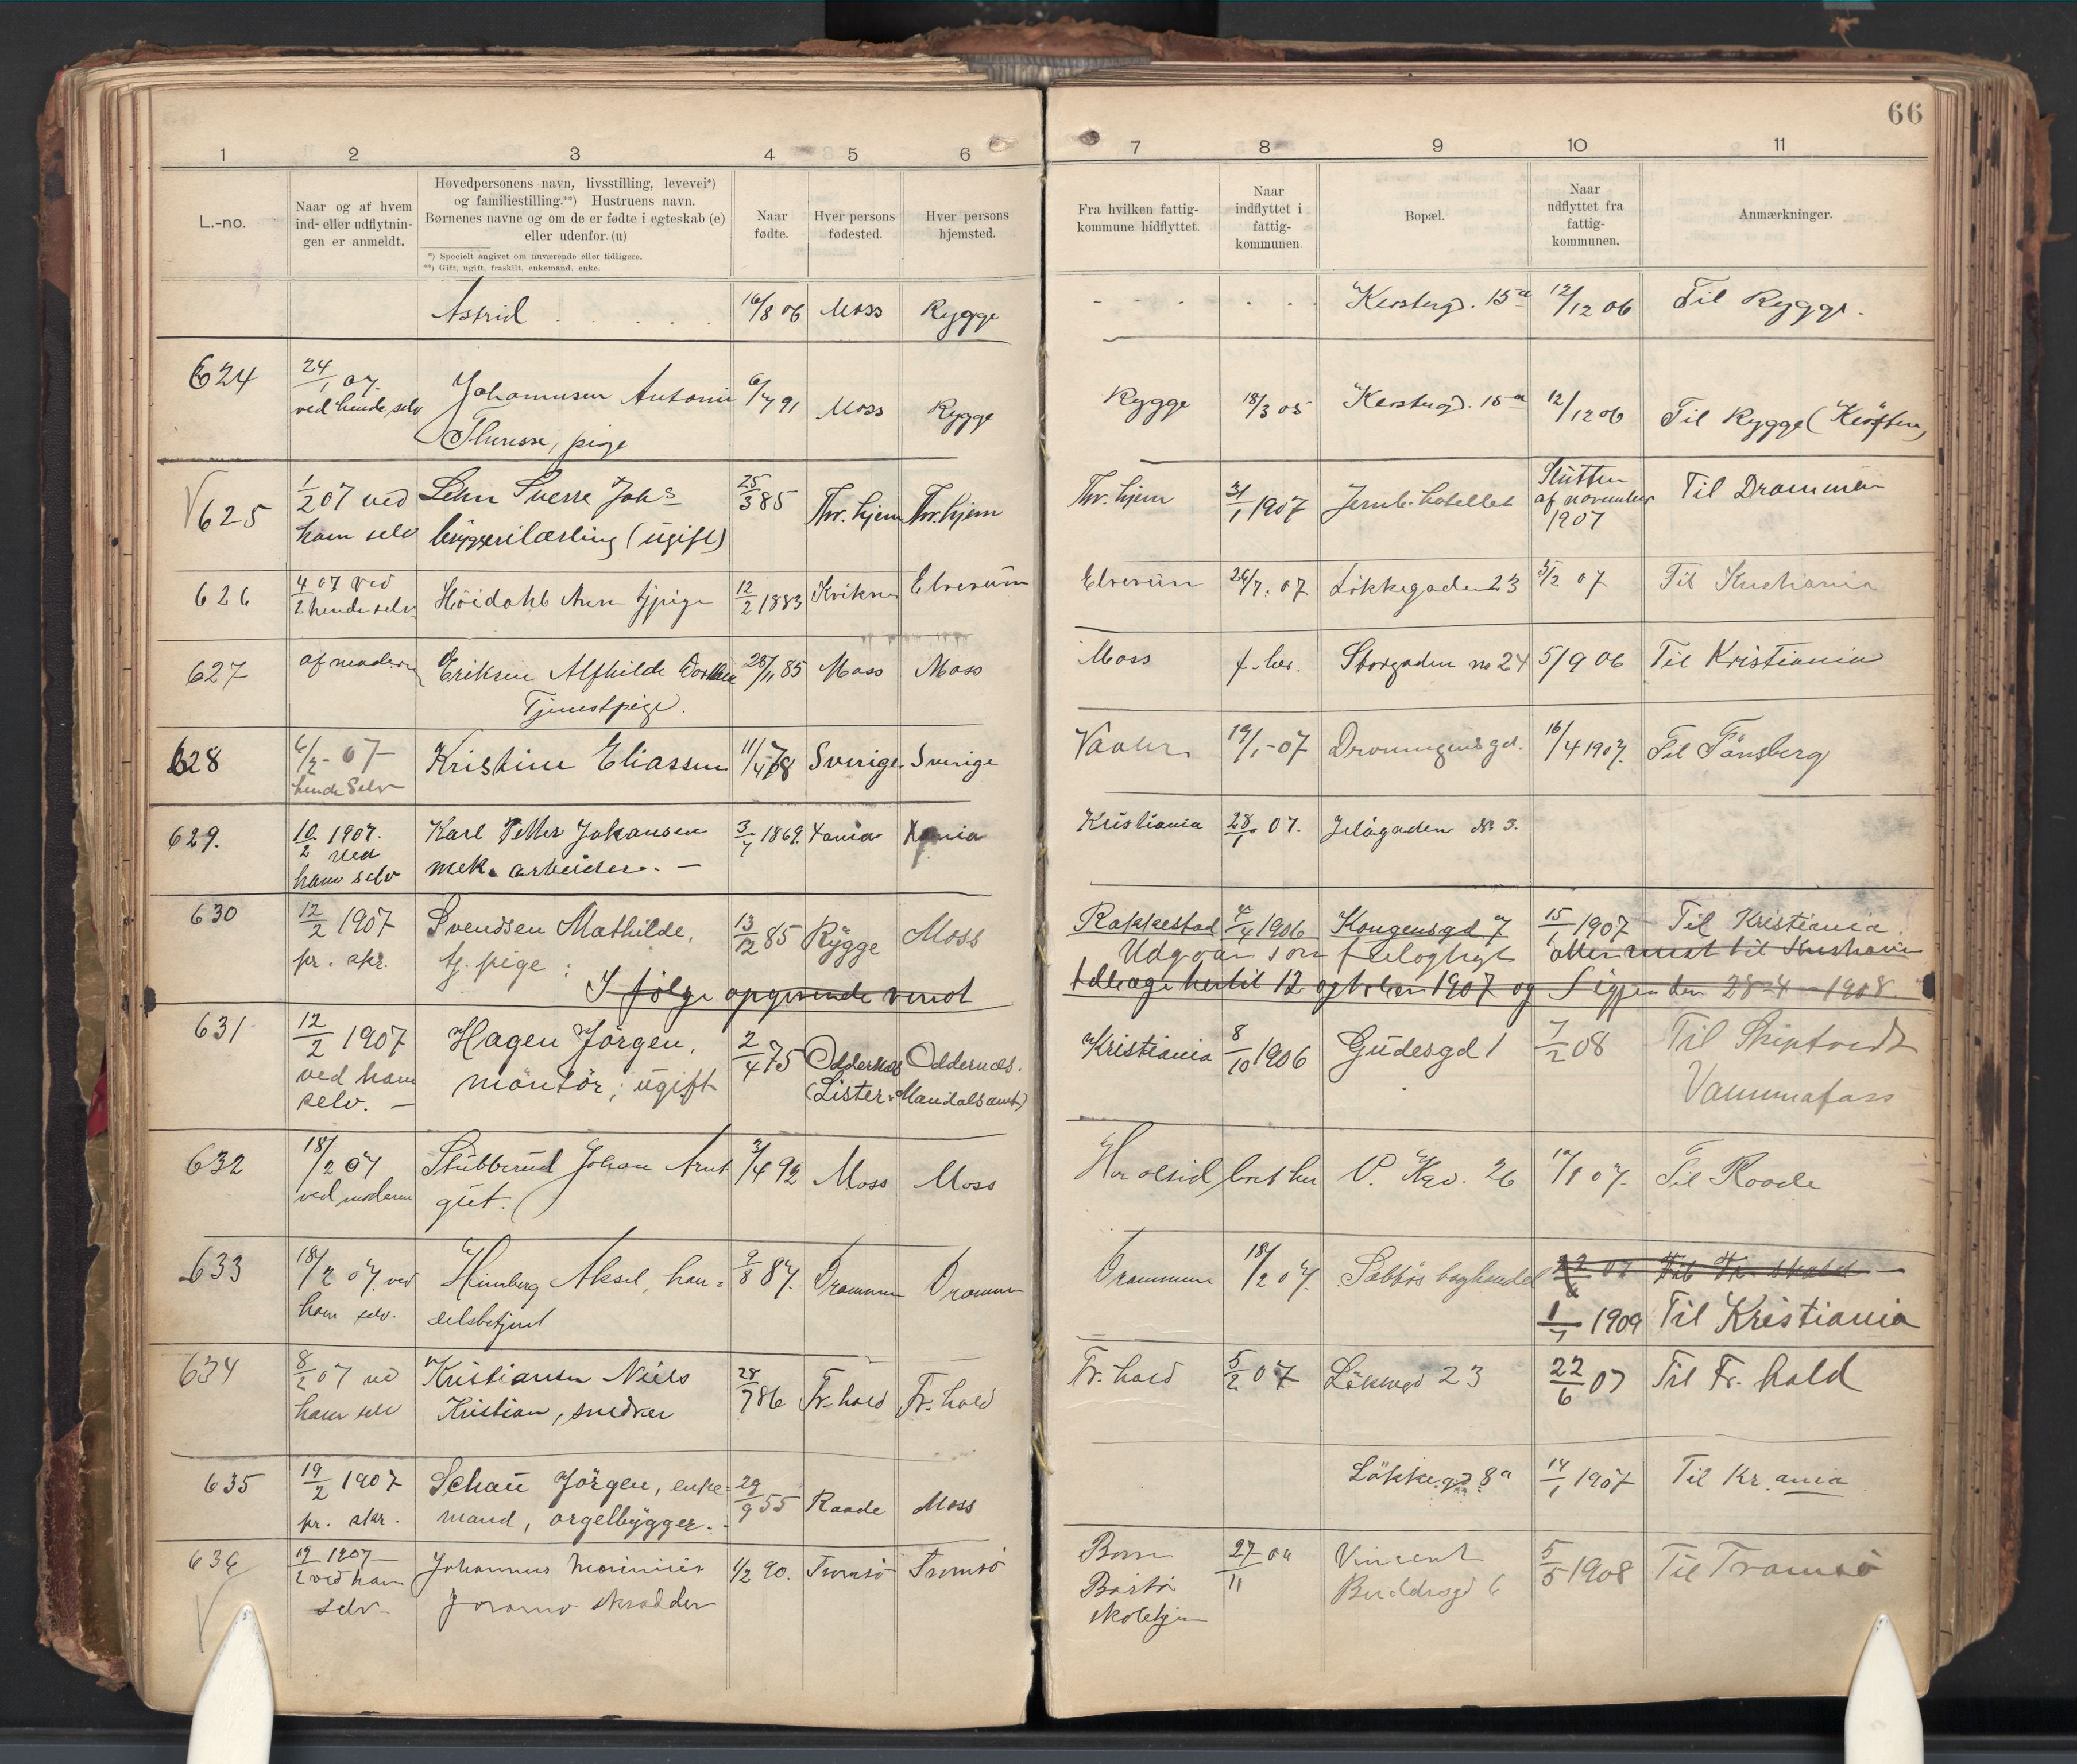 66
1 2 3 4 5 6 7 8 9 10 11
L.-no.
Naar og af hvem
ind- eller udflytnin-
gen er anmeldt.
Hovedpersonens navn, livsstilling, levevei*)
og familiestilling.**) Hustruens navn.
Børnenes navne og om de er fødte i egteskab (e)
eller udenfor. (u)
*) Specielt angivet om nuværende eller tidligere.
**) Gift, ugift, fraskilt, enkemand, enke.
Naar
fødte.
Hver persons
fødested.
Hver persons
hjemsted.
Fra hvilken fattig-
kommune hidflyttet.
Naar
indflyttet i
fattig-
kommunen.
Bopæl.
Naar
udflyttet fra
fattig-
kommunen.
Anmærkninger.
Astrid 16/8 06 Moss Rygge 15a 12/12 06 Til Rygge.
624 24/1 07. Johannesen Antonie 6/7 91 Moss Rygge Rygge 18/3 05 15a 12/12 06 Til Rygge
ved hende selv
pige
625 1/2 07 ved Lehn Sverre Johs 25/3 85 Thr.hjem Thr.hjem Thr.hjem 31/1 1907 Jernb. hotellet Slutten
af november
1907 Til Drammen
ham selv (ugift)
626 4/2 07 ved Höidahl Ann tjpige 12/2 1883 Kvikne Elverum Elverum 26/7. 07 Lökkegaden 23 07 Til Kristiania
hende selv
627 af moderen Eriksen Alfhilde 28/11 85 Moss Moss Moss f. her. Storgaden no 24 5/9 06 Til Kristiania
Tjenestpige.
628 6/2 - 07 Kristine Eliassen 11/4 78 Sverige Sverige Vaaler 19/1-07 Dronningens gd. 16/4 1907. Til Tönsberg
hende selv
629. 10/2 1907. Karl Petter Johansen 3/7 1869. Xania Xania Kristiania 28/1 07. Jelögaden No 3.
ved
ham selv mek. arbeider. -
630 12/2 1907 Svendsen Mathilde, 13/12 85 Rygge Moss Rakkestad 4/4 1906 Kongensgd 7 15/1 1907 - Til Kristiania.
pr. skr. tj. pige : Udgaar som
I følge opgivende vendt tilbage hertil 12 october 1907 og igjen den 28-4-1908.
631 12/2 1907 Hagen Jörgen, 2/4 75 Oddernæs Oddernæs. Kristiania 8/10 1906 Gudesgd 1 7/2 08 Til Skiptvedt
ved ham montör, ugift (Lister & Mandals amt) Vammafoss
selv. -
632 18/2 07 Stubberud Johan Arnt 3/4 92 Moss Moss Har altid boet her V. 26 07. Til Raade
ved moderen gut.
633 18/2 07. ved Himberg Aksel, han= 9/8 87. Drammen Drammen Drammen 18/2 07. boghandel 22/6 07 Til Fr. hald
ham selv. delsbetjent 1/7 1909 Til Kristiania
634 8/2 07 ved Kristiansen Niels 28/7 86 Fr. hald Fr. hald Fr. hald 5/2 07 Lökkegd 23 22/6 07 Til Fr. hald
ham selv Kristian, snedker
635 19/2 1907 Schau Jörgen, enke= 29/9 55 Raade Moss Lökkegd 8a 14/1 1907 Til Kr.ania
pr. skr. mand, orgelbygger. -
636 19/2 1907 Johannes 1/2 90. Tromsö Tromsö 27/11 Vincent 5/5 1908 Til Tromsö
ved ham skrædder Bastö Buddesgd 6
selv - skolehjem